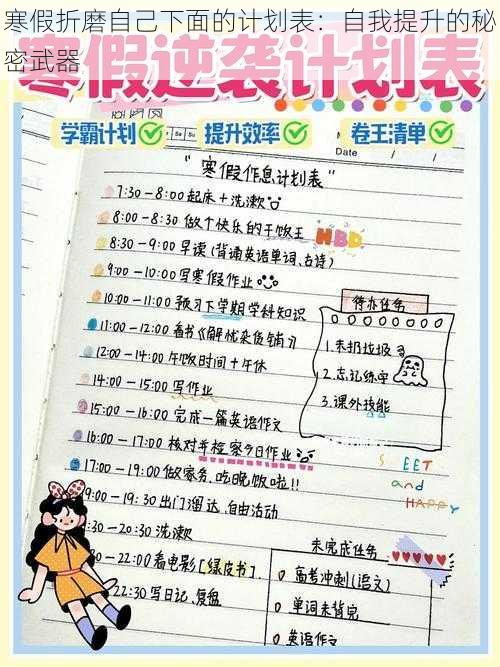 寒假折磨自己下面的计划表：自我提升的秘
密武器
寒假逆袭计划表
学霸计划
提升效率
卷王清单
Date
"寒假作息计划表"
7:30-8:00起床+洗漱
8:00-8:30 做个快乐的干饭王
HBD
8:30-9:00 早读(背诵英语单词、古诗)
9:00-10:00写寒假作业
10:00-11:00 预习下学期学科知识
11:00-12:00看书《解忧杂货铺》
12:00-14:00 午饭时间+午休
14:00-15:00 写作业
15:00-16:00 完成一篇英语作文
16:00-17:00 核对并检察今日作业
17:00-19:00做家务、吃晚饭啦!!
9:00-19:30出门溜达、自由活动
:30-20:30洗漱
30-22:00看电影[绿皮书].
22:30 写日记、复盘
待办任务
1.未扔垃圾
2.忘记练字
3.课外技能
S EET
and
HAPPY
未完成任务
高考冲刺(语文)
单词未背完
英语作文